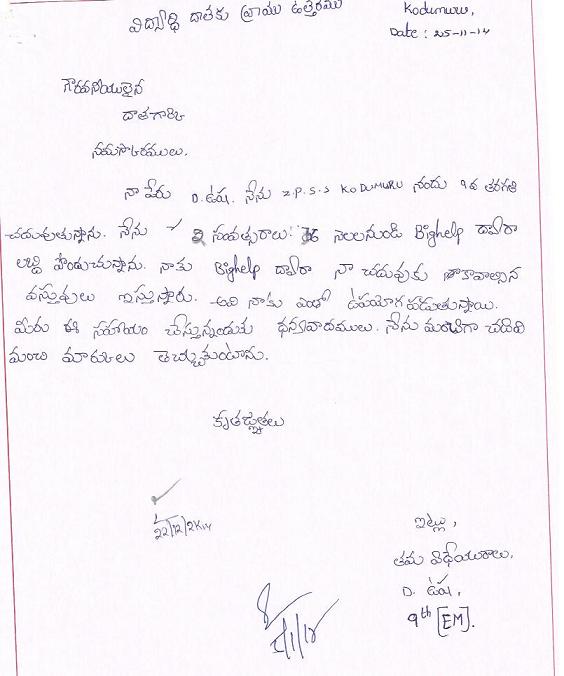 విద్యార్థి దాతకు వ్రాయు ఉత్తరము
Kodumuru,
Date : 25-11-14
గౌరవనీయులైన
దాతగారికి
నమస్కారములు.
నా పేరు D. ఉష. నేను Z.P.S.S KODUMURU నందు 9వ తరగతి
చదువుతున్నాను. నేను 2 సంవత్సరాలు నెలలనుండి Bighelp ద్వారా
లబ్ది పొందుచున్నాను. నాకు Bighelp ద్వారా నా చదువుకు కావాల్సిన
వస్తువులు ఇస్తున్నారు. అవి నాకు ఎంతో ఉపయోగపడుతున్నాయి.
మీరు ఈ సహాయం చేస్తున్నందుకు ధన్యవాదములు. నేను మంచిగా చదివి
మంచి మార్కులు తెచ్చుకుంటాను.
కృతజ్ఞతలు
22/12/2K14
ఇట్లు,
తమ విధేయురాలు,
D. ఉష,
9th [EM].